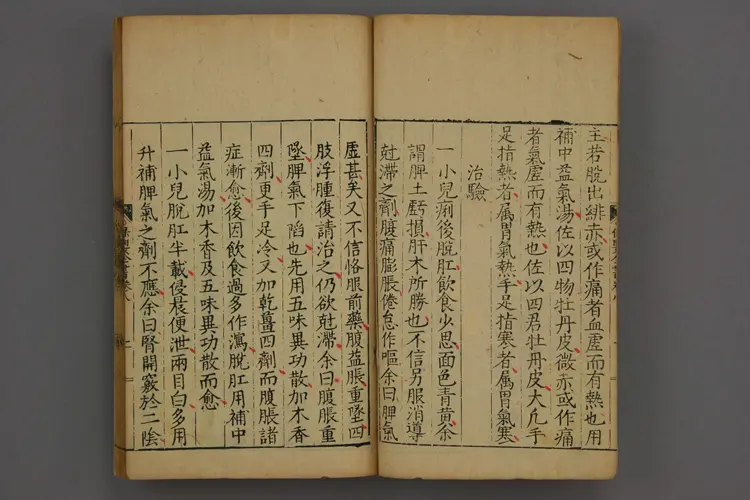 主若脫出緋赤或作痛者血虛而有熱也用
補中益氣湯佐以四物牡丹皮微赤或作痛
者氣虛而有熱也佐以四君牡丹皮大凡手
足指熱者屬胃氣熱手足指寒者屬胃氣寒
治驗
一小兒痢後脫肛飲食少思面色青黃余
謂脾土虧損肝木所勝也不信另服消導
尅滯之劑腹痛膨脹倦怠作嘔余曰脾氣
虛甚矣又不信恪服前藥腹益脹重墜四
肢浮腫復請治之仍欲尅滯余曰腹脹重
墜脾氣下陷也先用五味異功散加木香
四劑更手足冷又加乾薑四劑而腹脹諸
症漸愈後因飲食過多作瀉脫肛用補中
益氣湯加木香及五味異功散而愈
一小兒脫肛半載侵晨便泄兩目白多用
升補脾氣之劑不應余曰腎開竅於二陰